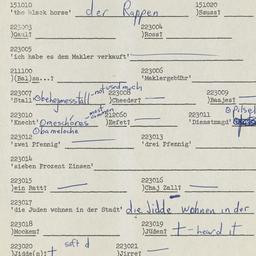 151010 151020
'the black horse' der Rappen )Sauss?
223003 223004
)Gaul? )Ross?
223005
'ich habe es dem Makler verkauft'
211100 not used much 223006
)(Bal)am...? 'Maklergebühr'
223007 223008 223009
'Stall' )Cheeder? )Baajes?
223010 212060 223011
'Knecht' )Hefet? )Dienstmagd'
223012 223013
'zwei Pfennig' 'drei Pfennig'
223014
'sieben Prozent Zinsen'
223015 223016
)ein Batt? )Chaj Zall?
223017
'die Juden wohnen in der Stadt' die Jidde wohnen in der
223018 223019
)Mocken? )Jüden? + - heard it
223020 soft d 223021
)Jidde(n)? + )Jirre?